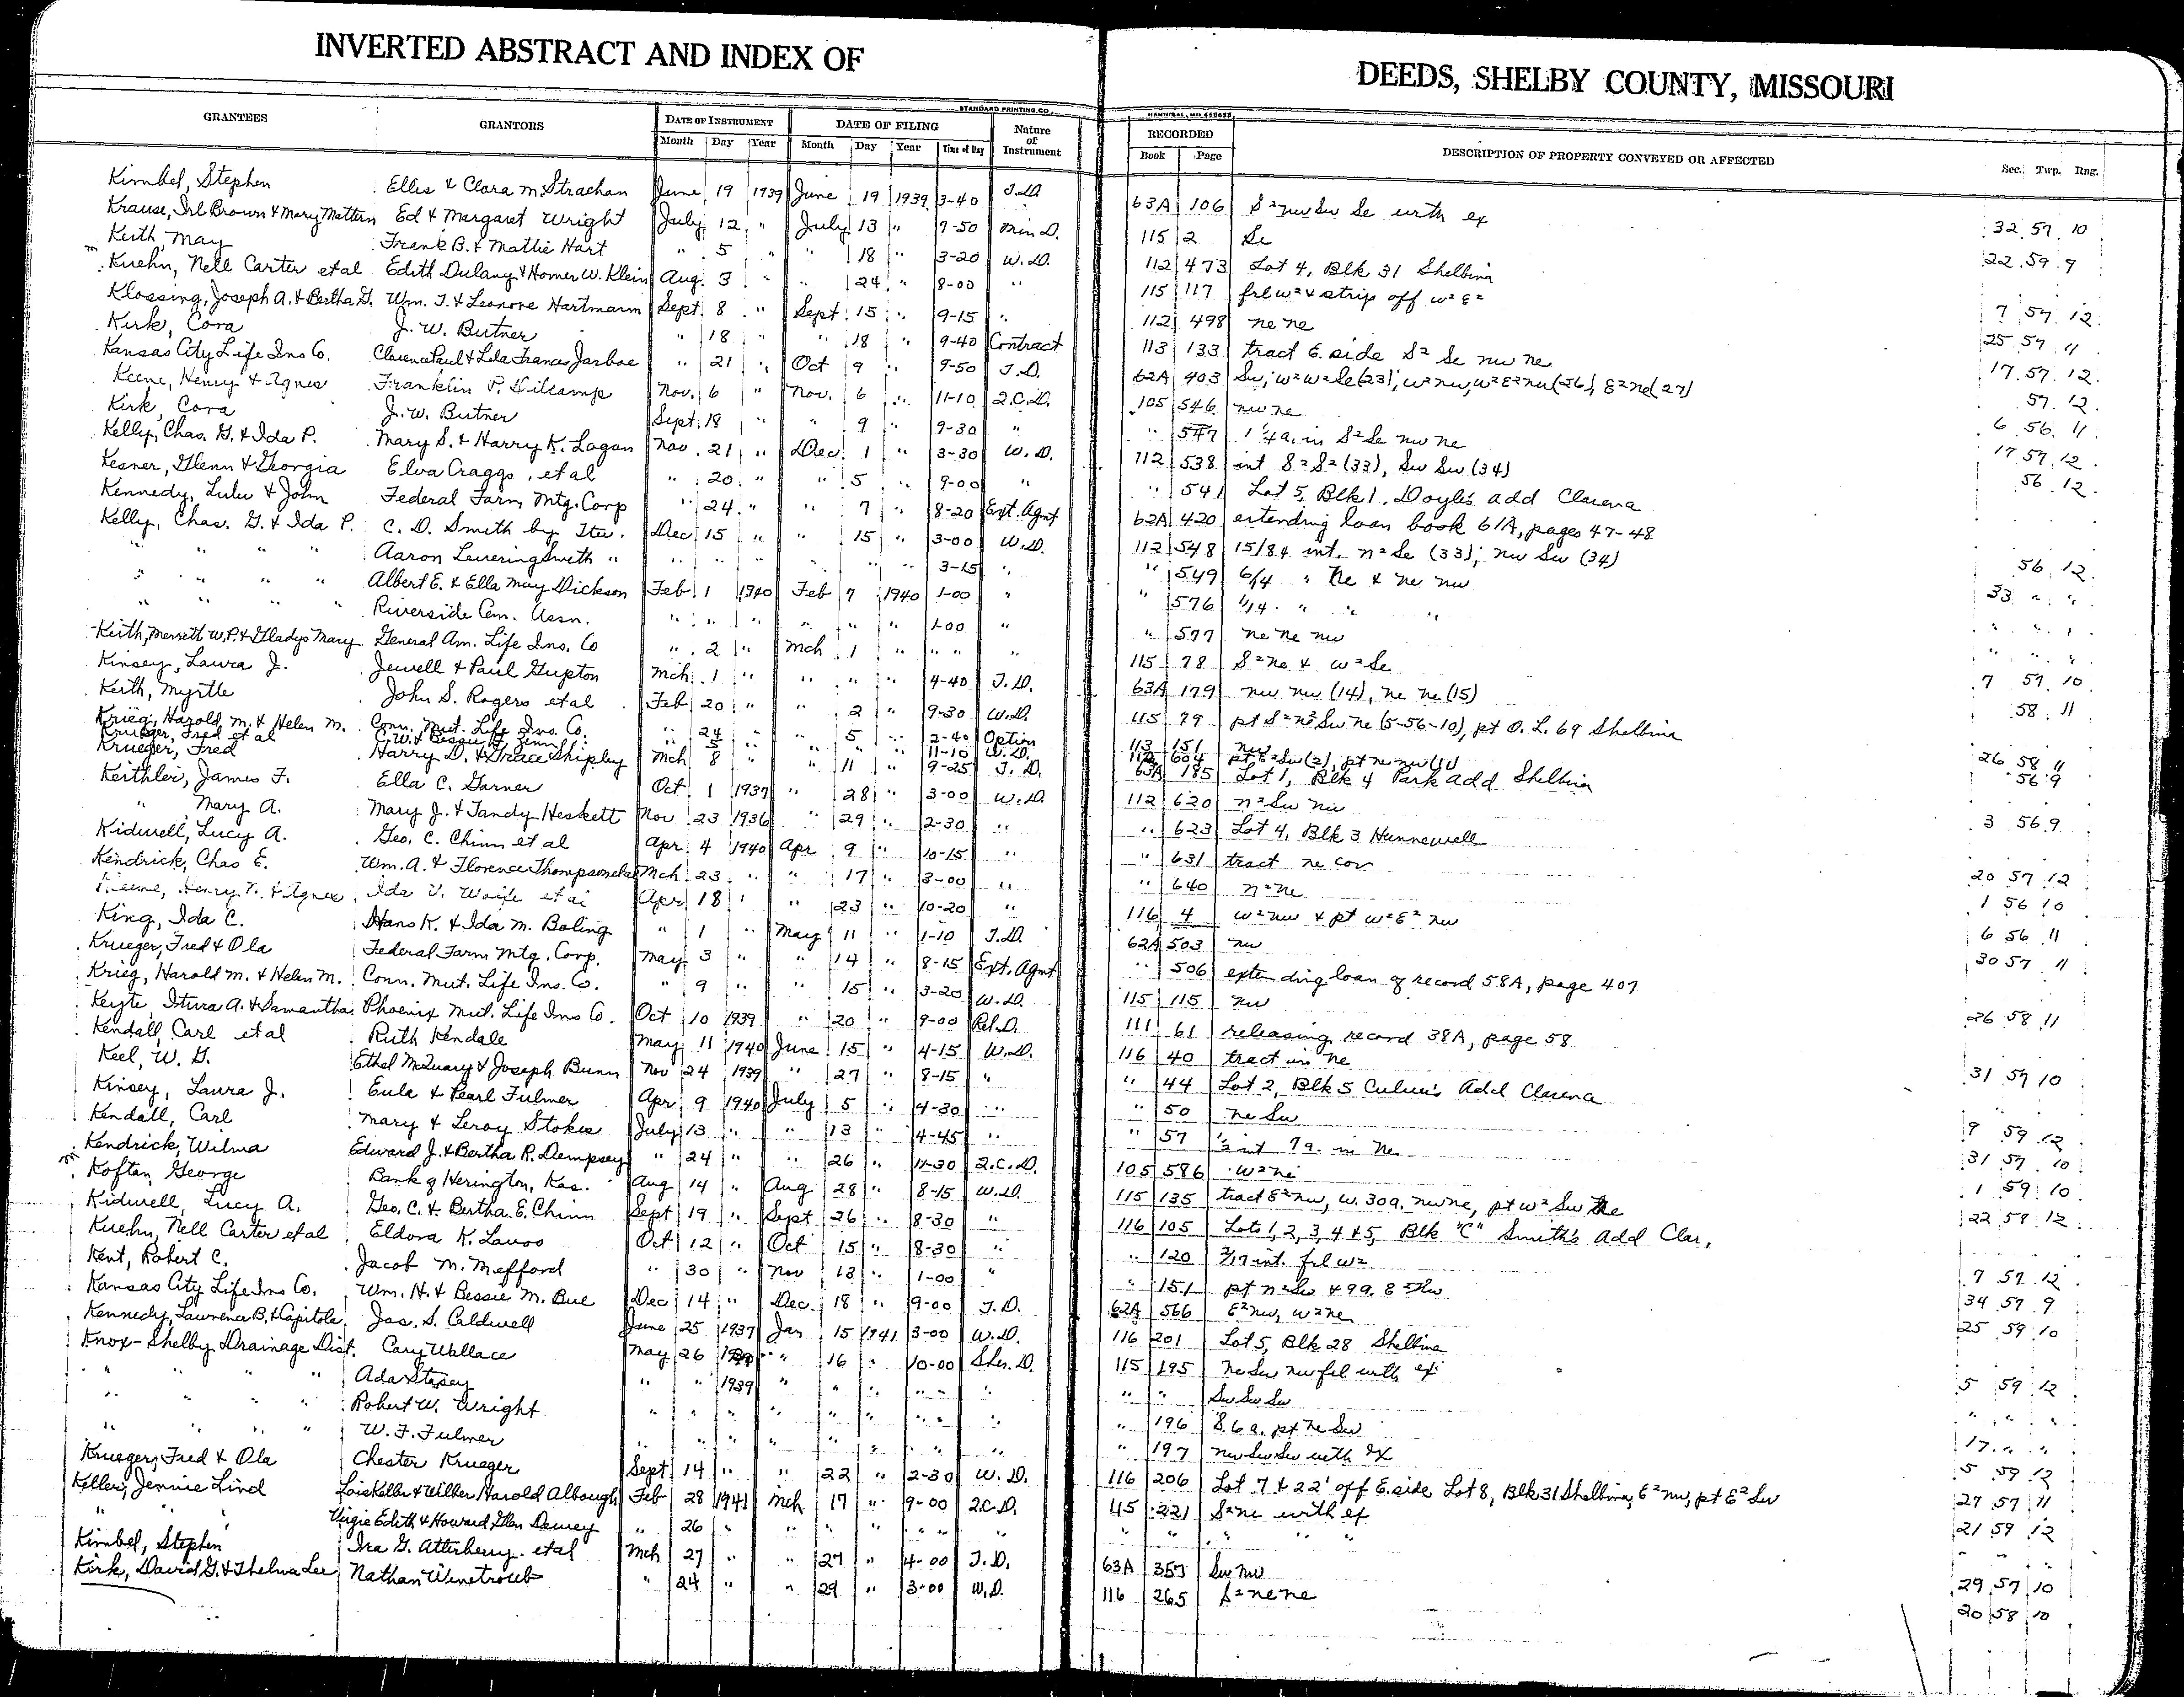 INVERTED ABSTRACT AND INDEX OF DEEDS, SHELBY COUNTY, MISSOURI
STANDARD PRINTING CO. HANNIBAL, MO.
GRANTEES GRANTORS DATE OF INSTRUMENT DATE OF FILING Nature of Instrument RECORDED DESCRIPTION OF PROPERTY CONVEYED OR AFFECTED Sec. Twp. Rng.
Month Day Year Month Day Year Time of Day Book Page
Kimbel, Stephen Ellis & Clara M. Strachan June 19 1939 June 19 1939 3-40 T.D. 63A 106 S² nw Sw Se with ex 32 57 10
Krause, Irl Brown & Mary Mattern Ed & Margaret Wright July 12 " July 13 " 9-50 Min D. 115 2 Se 22 59 9
Keith, May Frank B. & Mattie Hart " 5 " " 18 " 3-20 W.D. 112 473 Lot 4, Blk 31 Shelbina
Kuehn, Nell Carter et al Edith Dulany & Homer W. Klein Aug. 3 " " 24 " 8-00 " 115 117 frl w² & strip off w² E² 7 57 12
Klossing, Joseph A. & Bertha G. Wm. T. & Leonore Hartmann Sept 8 " Sept 15 " 9-15 " 112 498 ne ne 25 57 11
Kirk, Cora J. W. Butner " 18 " " 18 " 9-40 Contract 113 133 tract E. side S² Se nw ne 17 57 12
Kansas City Life Ins Co. Clarence Paul & Lela Frances Jarboe " 21 " Oct 9 " 9-50 T.D. 62A 403 Sw; w² w² Se (23), w² nw, w² E² nw (26), E² ne (27) 57 12
Keene, Henry & Agnes Franklin P. Dilcamp Nov. 6 " Nov. 6 " 11-10 Q.C.D. 105 546 nw ne 6 56 11
Kirk, Cora J. W. Butner Sept 18 " " 9 " 9-30 " " 547 1 1/4 a. in S² Se nw ne 17 57 12
Kelly, Chas. G. & Ida P. Mary S. & Harry K. Logan Nov. 21 " Dec 1 " 3-30 W.D. 112 538 int S² S² (33), Sw Sw (34) 56 12
Kesner, Glenn & Georgia Elva Craggs, et al " 20 " " 5 " 9-00 " " 541 Lot 5, Blk 1, Doyles add Clarena
Kennedy, Lulu & John Federal Farm Mtg. Corp " 24 " " 7 " 8-20 Ext. Agmt 62A 420 extending loan book 61A, pages 47-48
Kelly, Chas. G. & Ida P. C. D. Smith by Ttee. Dec 15 " " 15 " 3-00 W.D. 112 548 15/84 int. n² Se (33); nw Sw (34) 56 12
" " " " Aaron Levering Smith " " " " " " " 3-15 " " 549 6/4 " ne & ne nw 33 " "
" " " " Albert E. & Ella May Dickson Feb 1 1940 Feb 7 1940 1-00 " " 576 1/14 " " " " " "
" " " " Riverside Cem. Assn. " " " " " " 1-00 " " 577 ne ne nw " " "
Keith, Merrett W.P. & Gladys Mary General Am. Life Ins. Co " 2 " Mch 1 " " " " 115 78 S² ne & w² Se 7 57 10
Kinsey, Laura J. Jewell & Paul Gupton Mch 1 " " " " 4-40 T.D. 63A 179 nw nw (14), ne ne (15) 58 11
Keith, Myrtle John S. Rogers et al Feb 20 " " 2 " 9-30 W.D. 115 79 pt S² n² Sw ne (5-56-10), pt O. L. 69 Shelbina
Krieg, Harold M. & Helen M. Conn. Mut. Life Ins. Co. " 24 " " 5 " 2-40 Option 113 151 nw 26 58 11
Krueger, Fred et al " 5 " " " " 11-10 W.D. 112 604 pt E² Sw (2), pt ne nw (11) 56 9
Krueger, Fred Harry D. & Grace Shipley Mch 8 " " 11 " 9-25 T.D. 63A 185 Lot 1, Blk 4 Park add Shelbina
Keithler, James F. Ella C. Garner Oct 1 1937 " 28 " 3-00 W.D. 112 620 n² Sw nw 3 56 9
" Mary A. Mary J. & Tandy Heskett Nov 23 1936 " 29 " 2-30 " " 623 Lot 4, Blk 3 Hunnewell
Kidwell, Lucy A. Geo. C. Chinn et al Apr. 4 1940 Apr 9 " 10-15 " " 631 tract ne cor 20 57 12
Kendrick, Chas E. Wm. A. & Florence Thompson et al Mch 23 " " 17 " 3-00 " " 640 n² ne 1 56 10
Keene, Henry T. & Agnes Ida V. Waife et al Apr 18 " " 23 " 10-20 " 116 4 w² nw & pt w² E² nw 6 56 11
King, Ida C. Hans K. & Ida M. Boling " 1 " May 11 " 1-10 T.D. 62A 503 nw 30 57 11
Krueger, Fred & Ola Federal Farm Mtg. Corp. May 3 " " 14 " 8-15 Ext. Agmt " 506 extending loan of record 58A, page 407
Krieg, Harold M. & Helen M. Conn. Mut. Life Ins. Co. " 9 " " 15 " 3-20 W.D. 115 115 nw 26 58 11
Keyte, Itura A. & Samantha Phoenix Mut. Life Ins Co. Oct 10 1939 " 20 " 9-00 Rel. D. 111 61 releasing record 38A, page 58
Kendall, Carl et al Ruth Kendale May 11 1940 June 15 " 4-15 W.D. 116 40 tract in ne 31 59 10
Keel, W. G. Ethel McQuary & Joseph Bunn Nov 24 1939 " 27 " 8-15 " " 44 Lot 2, Blk 5 Culver's Add Clarena
Kinsey, Laura J. Eula & Pearl Fulmer Apr 9 1940 July 5 " 4-30 " " 50 ne Sw 9 59 12
Kendall, Carl Mary & Leroy Stokes July 13 " " 13 " 4-45 " " 57 1/2 int 7a. in ne 31 57 10
Kendrick, Wilma Edward J. & Bertha R. Dempsey " 24 " " 26 " 11-30 Q.C.D. 105 586 w² ne 1 59 10
Koftan, George Bank of Herington, Kas. Aug 14 " Aug 28 " 8-15 W.D. 115 135 tract E² nw, w. 30a. nw ne, pt w² Sw ne 22 58 12
Kidwell, Lucy A. Geo. C. & Bertha E. Chinn Sept 19 " Sept 26 " 8-30 " 116 105 Lots 1, 2, 3, 4 & 5, Blk "C" Smith's Add Clar.
Kuehn, Nell Carter et al Eldora K. Lauos Oct 12 " Oct 15 " 8-30 " " 120 int. frl w² 7 57 12
Kent, Robert C. Jacob M. Mefford " 30 " Nov 13 " 1-00 " " 151 pt n² Sw & 99. 34 57 9
Kansas City Life Ins Co. Wm. H. & Bessie M. Bue Dec 14 " Dec. 18 " 9-00 T.D. 62A 566 E² nw, w² ne 25 59 10
Kennedy, Lawrence B. & Capitola Jas. S. Caldwell June 25 1937 Jan 15 1941 3-00 W.D. 116 201 Lot 5, Blk 28 Shelbina
Knox-Shelby Drainage Dist. Cary Wallace May 26 " 16 " 10-00 Sher. D. 115 195 ne Sw nw frl with ex 5 59 12
" " " " Ada Stasey " " 1939 " " " " " " " " Sw Sw Sw " " "
" " " " Robert W. Wright " " " " " " " " " " 196 8.6 a. pt ne Sw 17 " "
" " " " W. F. Fulmer " " " " " " " " " " 197 nw Sw Sw with ex 5 59 12
Krueger, Fred & Ola Chester Krueger Sept 14 " " 22 " 2-30 W.D. 116 206 Lot 7 & 22' off E. side Lot 8, Blk 31 Shelbina, E² nw, pt E² Sw 27 57 11
Keller, Jennie Lind Lois Keller & Wilber Harold Albough Feb 28 1941 Mch 17 " 9-00 Q.C.D. 115 221 S² ne with ex 21 59 12
" " Virgie Edith & Howard Glen Dewey " 26 " " " " " " " " " " " " " " "
Kimbel, Stephen Ira G. Atterberry et al Mch 27 " " 27 " 4-00 T.D. 63A 353 Sw nw 29 57 10
Kirk, David G. & Thelma Lee Nathan Winetroub " 24 " " 29 " 3-00 W.D. 116 265 S² ne ne 20 58 10